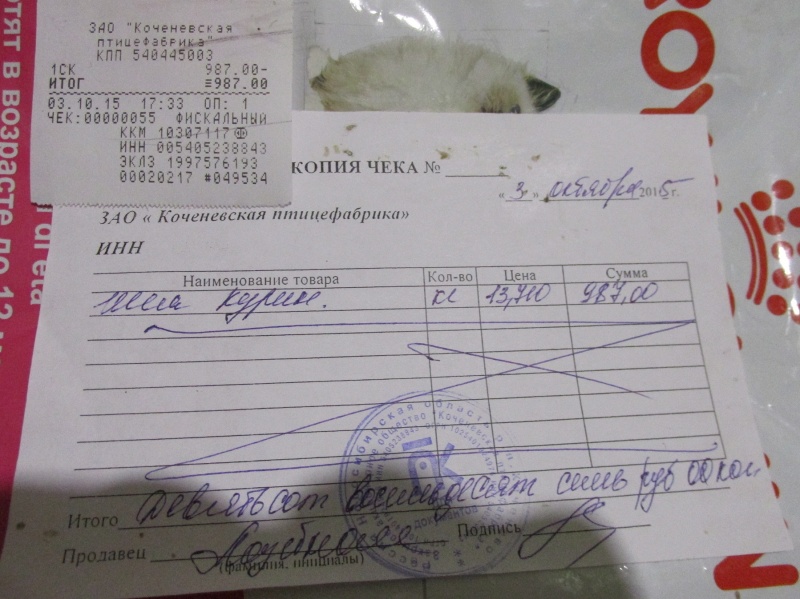 ЗАО "Коченевская
птицефабрика"
КПП 540445003
1СК 987.00-
ИТОГ ≡987.00
03.10.15 17:33 ОП: 1
ЧЕК:00000055 ФИСКАЛЬНЫЙ
ККМ 10307117
ИНН 005405238843
ЭКЛЗ 1997576193
00020217 #049534
КОПИЯ ЧЕКА №
«3» октября 2015г.
ЗАО « Коченевская птицефабрика»
ИНН
Наименование товара Кол-во Цена Сумма
шея курин. кг 13,710 987,00
Итого Девятьсот восемьдесят семь руб 00 коп.
Продавец Подпись
(фамилия, инициалы)
отят в возрасте до 12 м
ROY